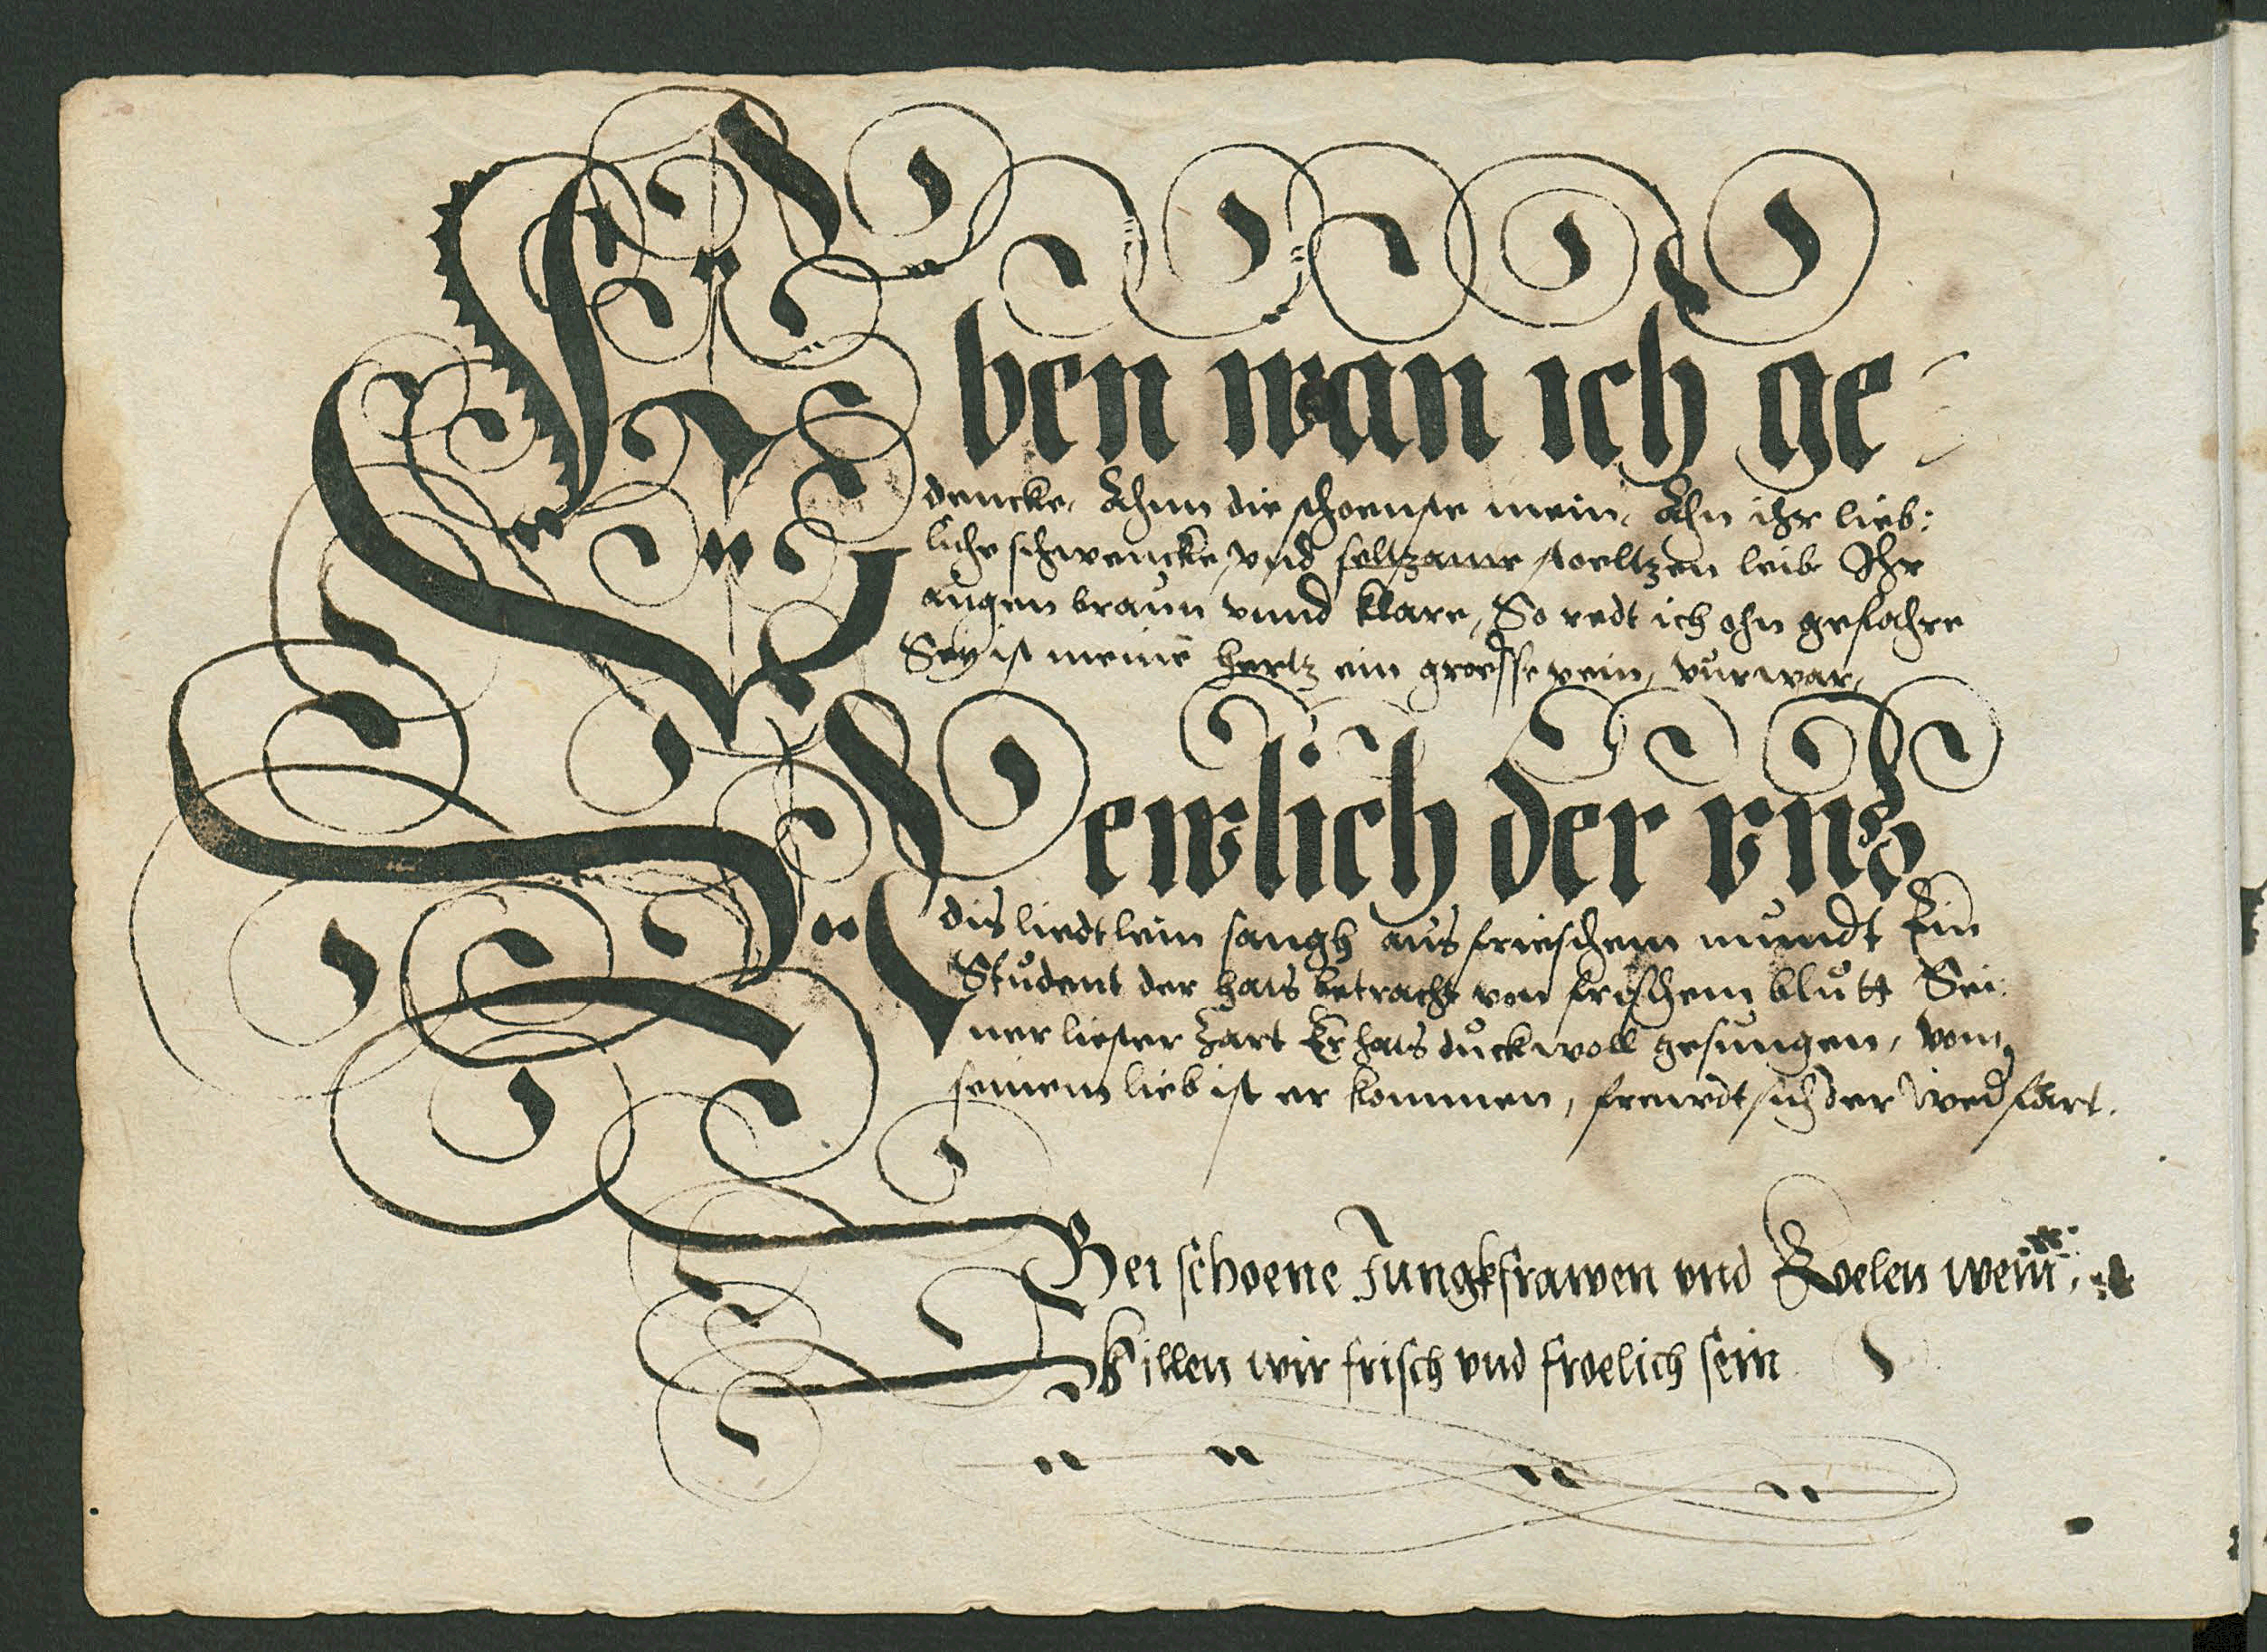 Eben wan ich ge-
dencke, Ahnn die schoenste mein, Ahn ihr lieb:
liche schwencke, vnd seltzame stoeltzen leib Ihr
augen braun vnnd klare, So redt ich ohn gefahre
Sey ist meinē hertz ein groesse pein, vurwar,
Newlich der vns
dis liedtlein sangh aus frieschem mundt Ein
Student der hats betracht von frischem blutt Sei:
ner liester zart Er hats duck woll gesungen, vom
seinem lieb ist er kommen, frewdt sich der
Bei schoene Jungkfrawen vnd Koelen wein,
Willen wir frisch vnd froelich sein